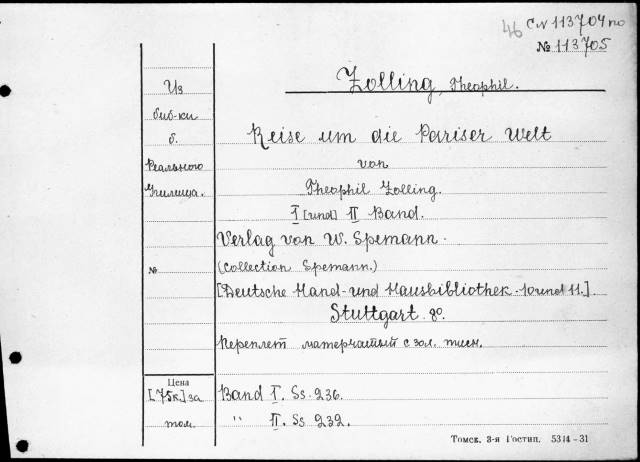 46 с N 113704 по
№ 113705
Zolling, Theophil.
Из
биб-ки
б.
Реального
Училища.
Reise um die Pariser Welt
von
Theophil Zolling.
I [und] II Band.
Verlag von W. Spemann.
№
(Collection Spemann.)
[Deutsche Hand- und Hausbibliothek. 10 und 11.]
Stuttgart. 8º.
Переплет матерчатый с зол. тисн.
Цена
[75 к.] за
том.
Band I. Ss. 236.
" II. Ss. 232.
Томск. 3-я Гостип. 5314-31